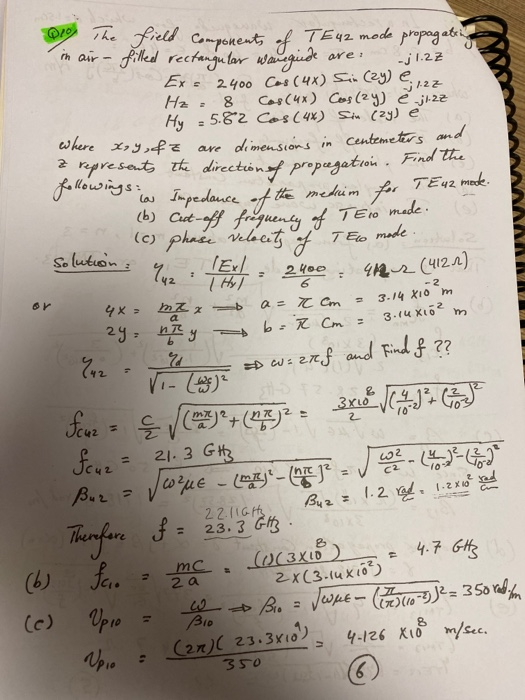 Q10. The field components of TE42 mode propagating
in air - filled rectangular waveguide are:
Ex = 2400 Cos(4x) Sin (2y) e^-j1.2z
Hz = 8 Cos(4x) Cos(2y) e^-j1.2z
Hy = 5.82 Cos(4x) Sin (2y) e^-j1.2z
where x,y,& z are dimensions in centemeters and
z represents the direction of propagation. Find the
followings:
(a) Impedance of the medium for TE42 mode.
(b) Cut-off frequency of TE10 mode.
(c) phase velocity of TE10 mode.
Solution: η42 = |Ex|/|Hy| = 2400/6 = 412 Ω (412 Ω)
or 4x = mπ/a x ⇒ a = π Cm = 3.14 x10^-2 m
2y = nπ/b y ⇒ b = π Cm = 3.14 x10^-2 m
η42 = ηd/√(1-(ωc/ω)²) ⇒ ω = 2πf and Find f ??
fc42 = c/2 √((mπ/a)²+(nπ/b)²) = 3x10^8/2 √((4/10^-2)²+(2/10^-2)²)
fc42 = 21.3 GHz
β42 = √(ω²με - (mπ/a)² - (nπ/b)²) = √(ω²/c² - (4/10^-2)² - (2/10^-2)²)
β42 = 1.2 rad/cm = 1.2x10² rad/m
22.11GHz
Therefore f = 23.3 GHz.
(b) fc10 = mc/2a = (1)(3x10^8)/2x(3.14x10^-2) = 4.7 GHz
(c) Vp10 = ω/β10 ⇒ β10 = √(ωμε - (π/(π)(10^-2))²) = 350 rad/m
Vp10 = (2π)(23.3x10^9)/350 = 4.126 x10^8 m/sec.
6